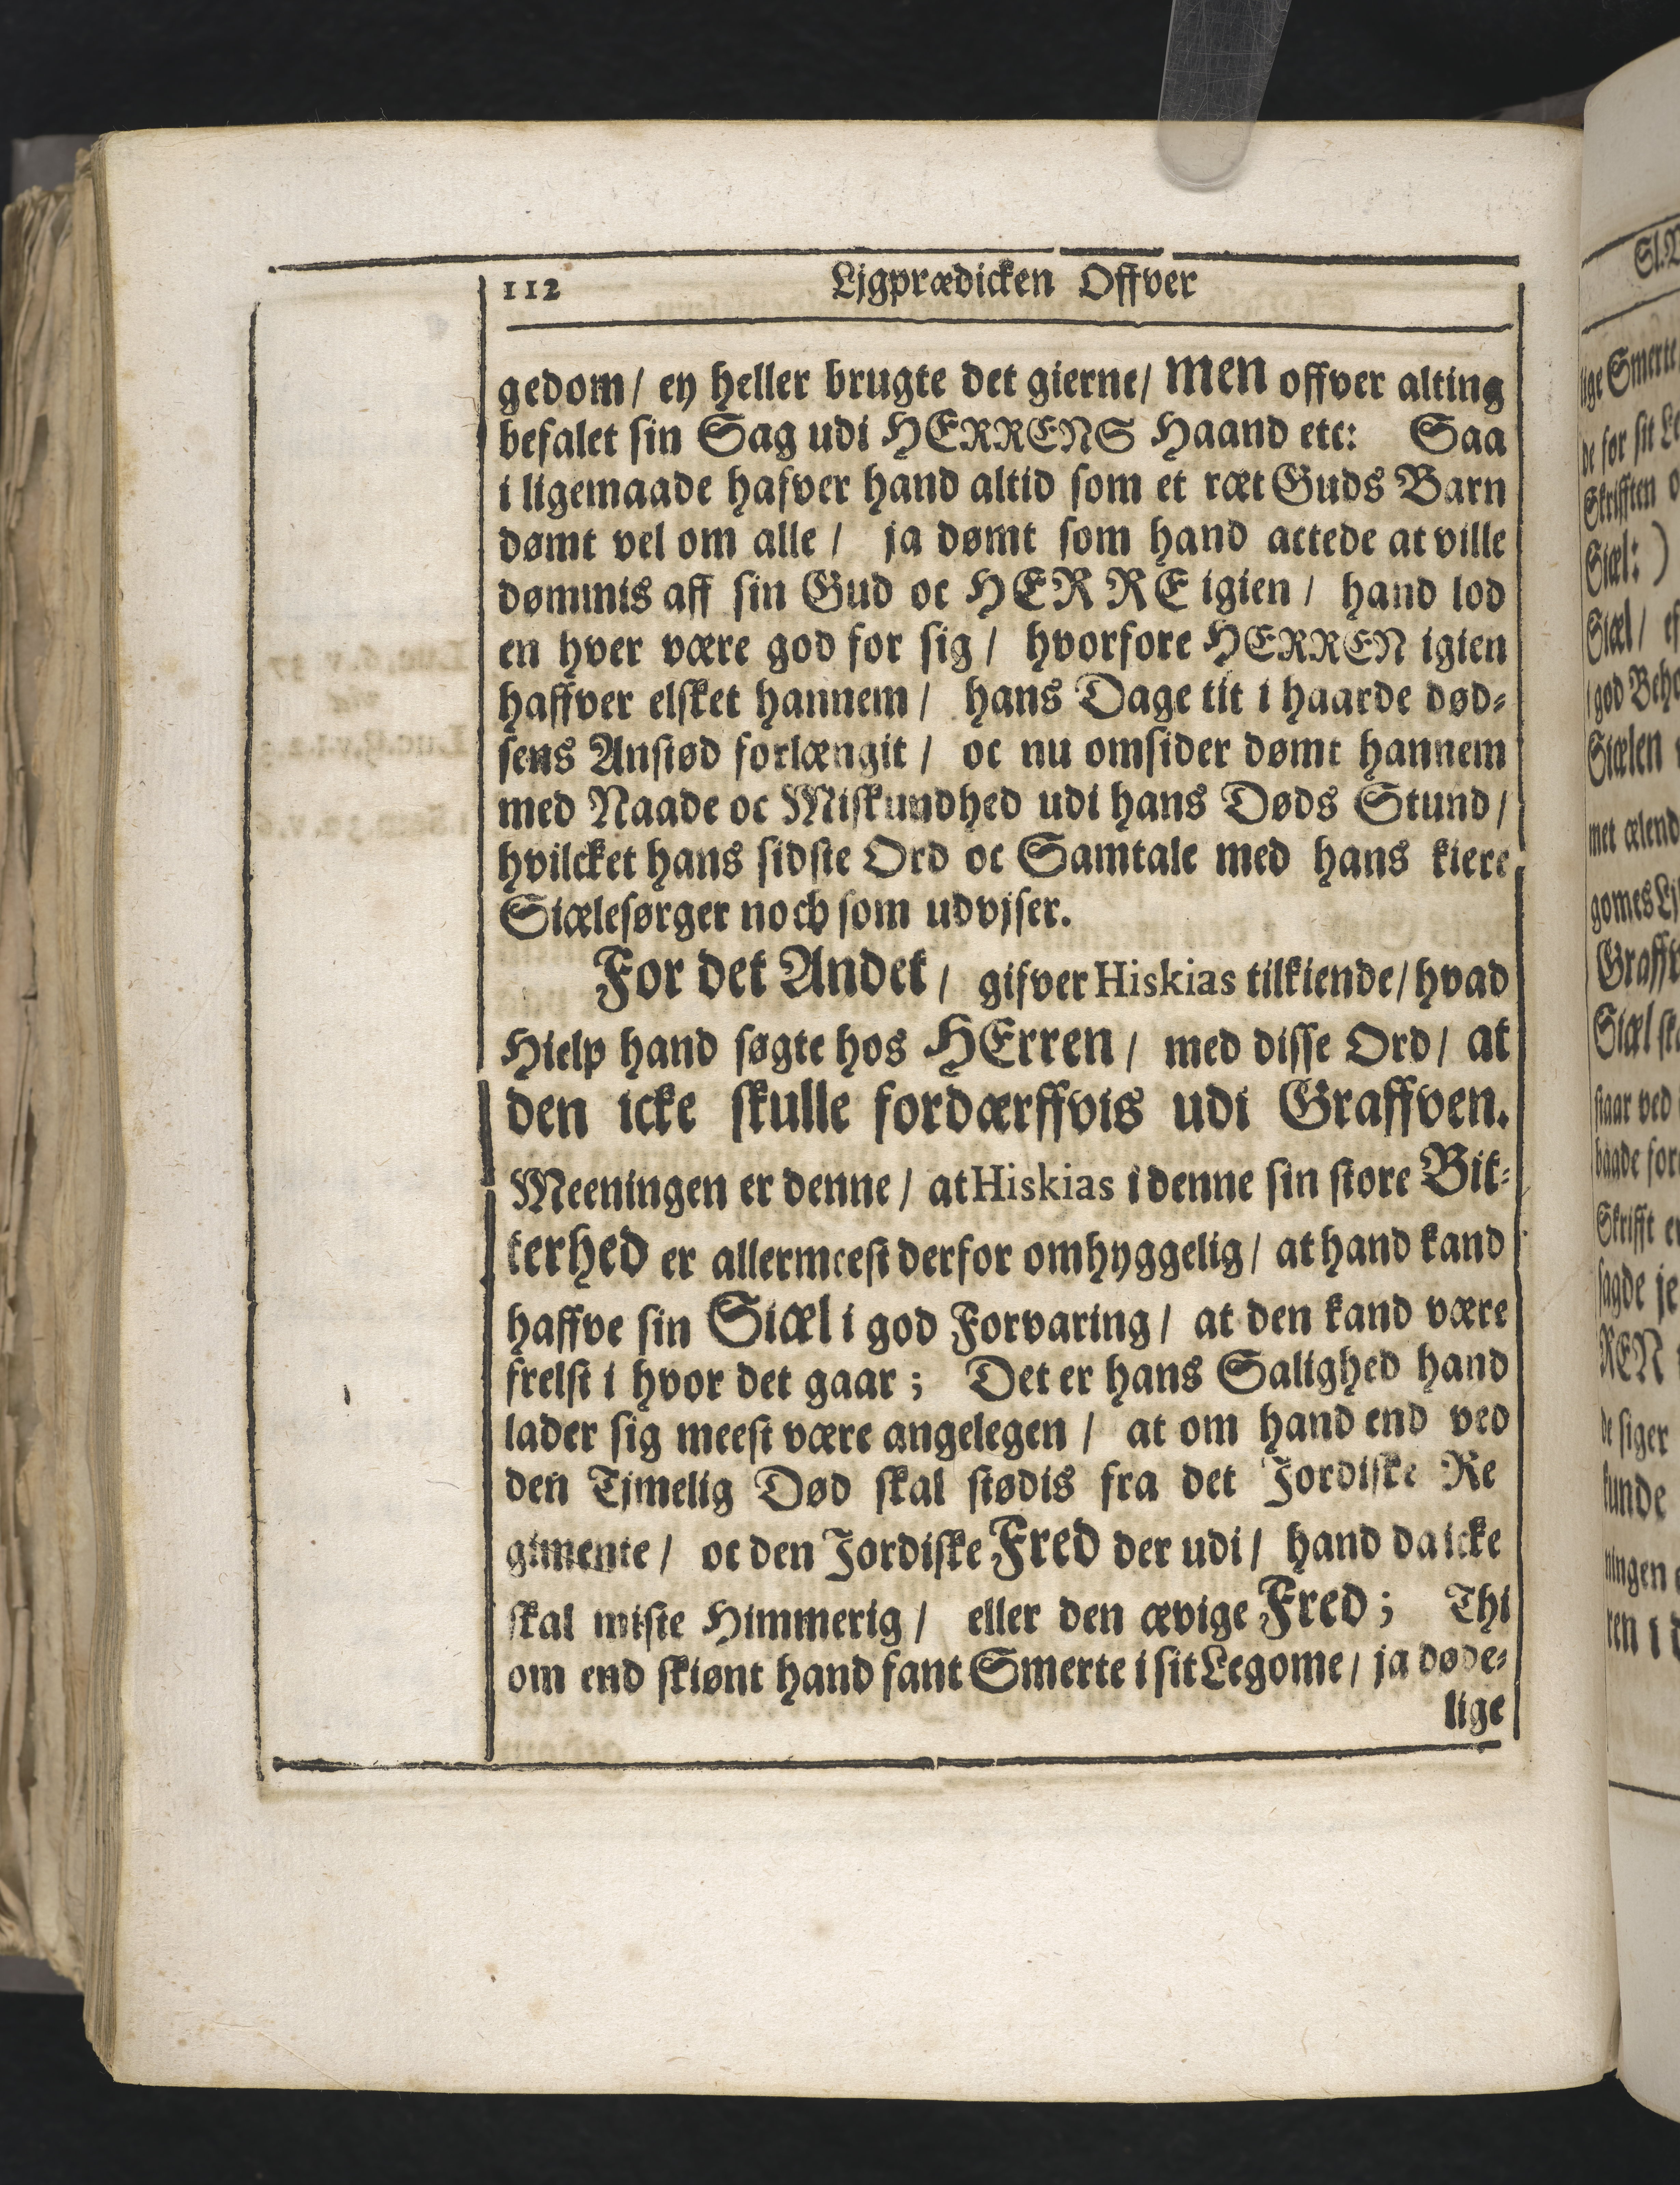 112 Ljgprædicken Offver
gedom/ ey heller brugte det gierne/ men offver alting
befalet sin Sag udi HERRENS Haand etc: Saa
i ligemaade hafver hand altid som et ræt Guds Barn
dømt vel om alle / ja dømt som hand actede at ville
dømmis aff sin Gud oc HERRE igien / hand lod
en hver være god for sig / hvorfore HERREN igien
haffver elsket hannem / hans Dage tit i haarde død-
sens Anstød forlængit / oc nu omsider dømt hannem
med Naade oc Miskundhed udi hans Døds Stund /
hvilcket hans sidste Ord oc Samtale med hans kiere
Siælesørger noch som udvjser.
For det Andet / gifver Hiskias tilkiende / hvad
Hielp hand søgte hos HErren / med disse Ord / at
den icke skulle fordærffvis udi Graffven.
Meeningen er denne / at Hiskias i denne sin store Bit-
terhed er allermeest derfor omhyggelig / at hand kand
haffve sin Siæl i god Forvaring / at den kand være
frelst i hvor det gaar ; Det er hans Salighed hand
lader sig meest være angelegen / at om hand end ved
den Tjmelig Død skal stødis fra det Jordiske Re
gimente / oc den Jordiske Fred der udi / hand da icke
skal miste Himmerig / eller den ævige Fred ; Thi
om end skiønt hand fant Smerte i sit Legome / ja døde-
lige